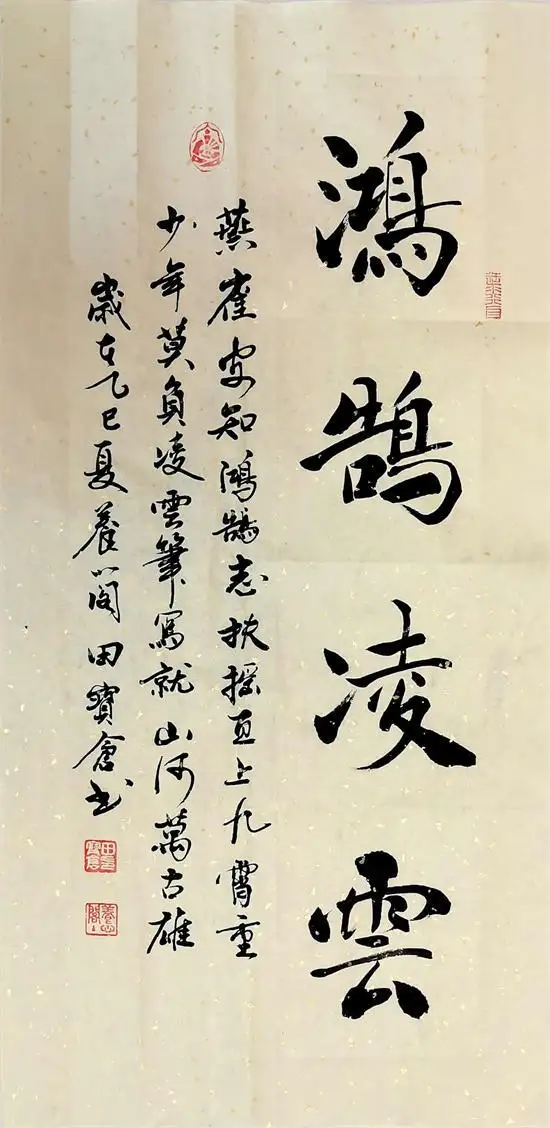 鴻鵠凌雲
燕雀安知鴻鵠志扶摇直上九霄重
少年莫負凌雲筆寫就山河萬古雄
歲在乙巳夏養心閣田寶倉書
田寶倉